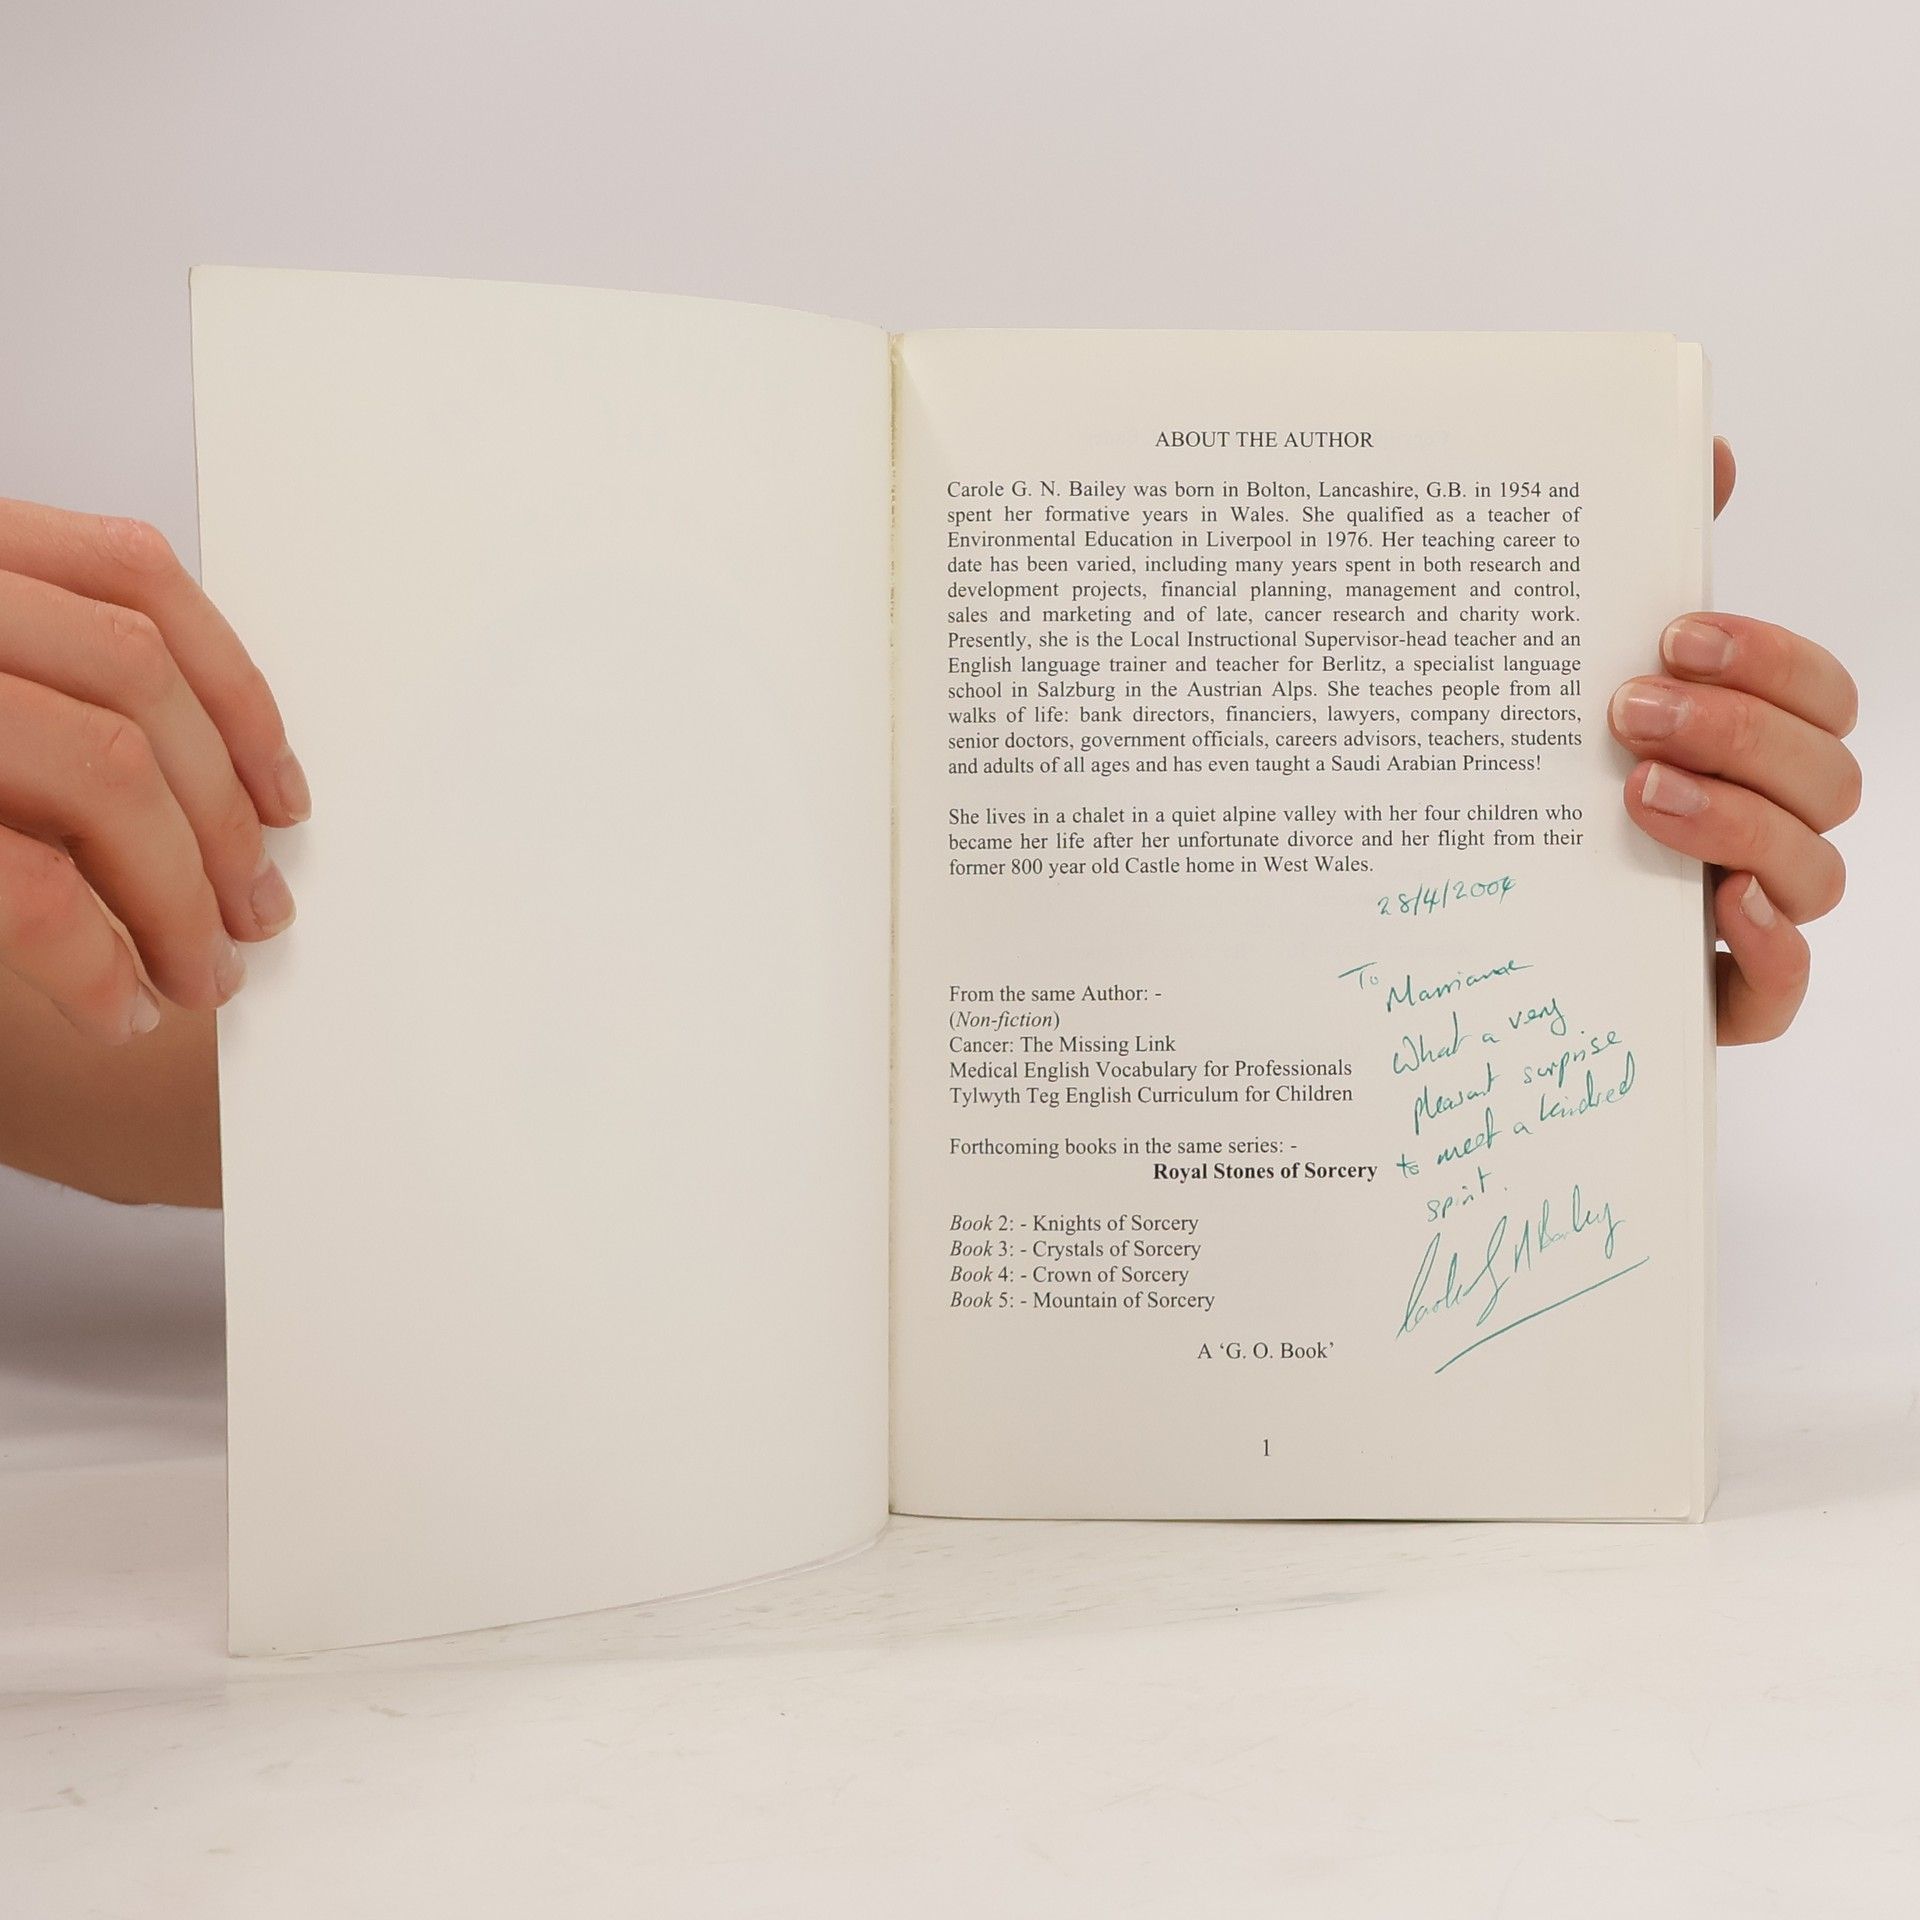 ABOUT THE AUTHOR
Carole G. N. Bailey was born in Bolton, Lancashire, G.B. in 1954 and
spent her formative years in Wales. She qualified as a teacher of
Environmental Education in Liverpool in 1976. Her teaching career to
date has been varied, including many years spent in both research and
development projects, financial planning, management and control,
sales and marketing and of late, cancer research and charity work.
Presently, she is the Local Instructional Supervisor-head teacher and an
English language trainer and teacher for Berlitz, a specialist language
school in Salzburg in the Austrian Alps. She teaches people from all
walks of life: bank directors, financiers, lawyers, company directors,
senior doctors, government officials, careers advisors, teachers, students
and adults of all ages and has even taught a Saudi Arabian Princess!
She lives in a chalet in a quiet alpine valley with her four children who
became her life after her unfortunate divorce and her flight from their
former 800 year old Castle home in West Wales.
28/4/2004
From the same Author: -
(Non-fiction)
Cancer: The Missing Link
Medical English Vocabulary for Professionals
Tylwyth Teg English Curriculum for Children
Forthcoming books in the same series: -
Royal Stones of Sorcery
Book 2: - Knights of Sorcery
Book 3: - Crystals of Sorcery
Book 4: - Crown of Sorcery
Book 5: - Mountain of Sorcery
A ‘G. O. Book’
To
What a very
pleasant surprise
to meet a kindred
spirit.
Carole G N Bailey
1